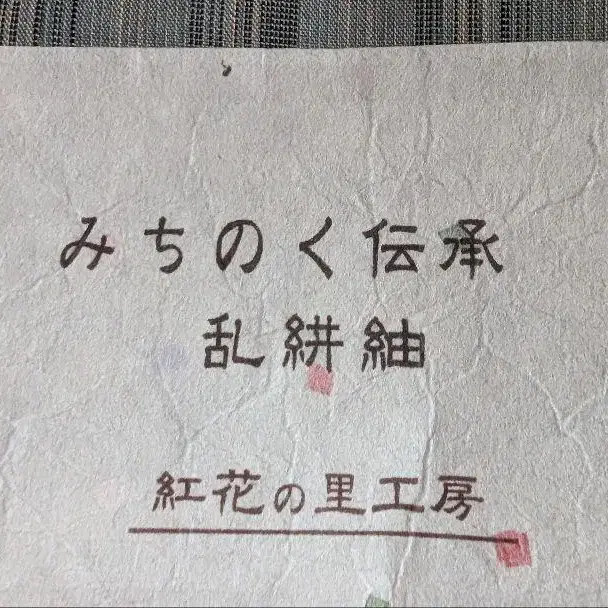 みちのく伝承
乱絣紬
紅花の里工房